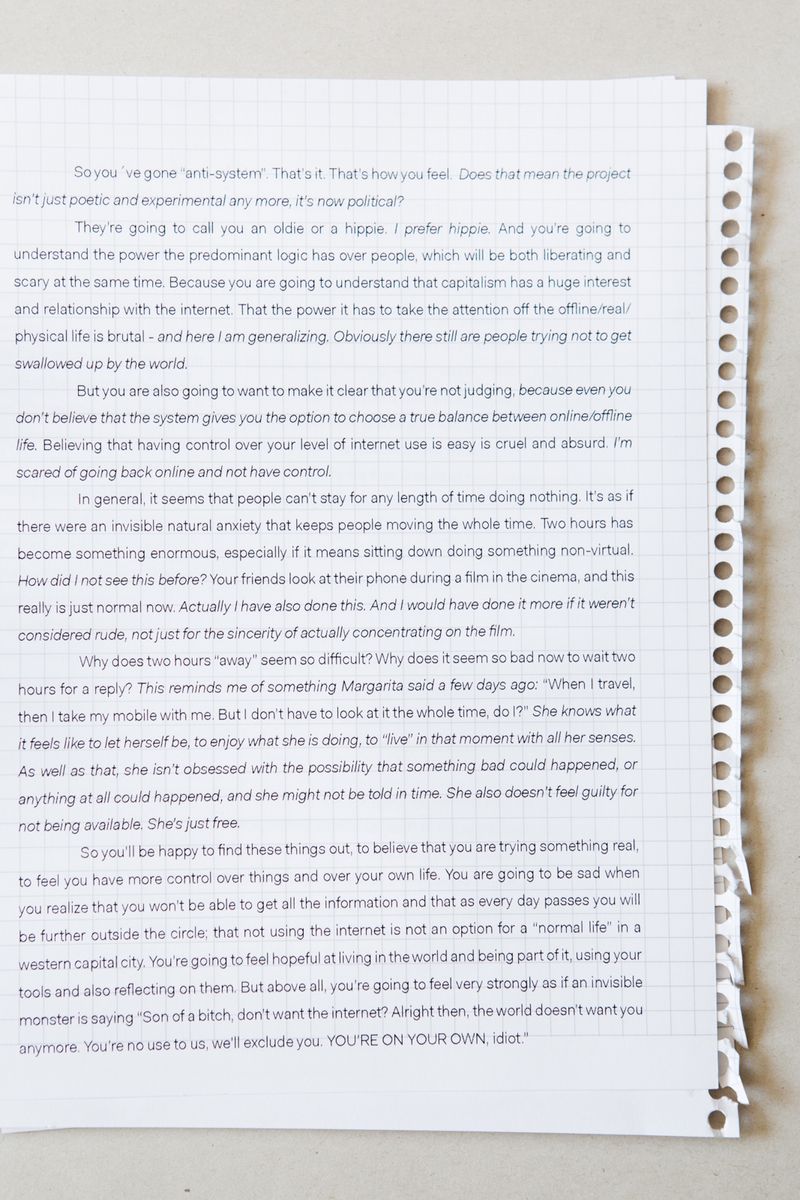 So you ´ve gone "anti-system". That's it. That's how you feel. Does that mean the project
isn't just poetic and experimental any more, it's now political?
They're going to call you an oldie or a hippie. I prefer hippie. And you're going to
understand the power the predominant logic has over people, which will be both liberating and
scary at the same time. Because you are going to understand that capitalism has a huge interest
and relationship with the internet. That the power it has to take the attention off the offline/real/
physical life is brutal - and here I am generalizing. Obviously there still are people trying not to get
swallowed up by the world.
But you are also going to want to make it clear that you're not judging, because even you
don't believe that the system gives you the option to choose a true balance between online/offline
life. Believing that having control over your level of internet use is easy is cruel and absurd. I'm
scared of going back online and not have control.
In general, it seems that people can't stay for any length of time doing nothing. It's as if
there were an invisible natural anxiety that keeps people moving the whole time. Two hours has
become something enormous, especially if it means sitting down doing something non-virtual.
How did I not see this before? Your friends look at their phone during a film in the cinema, and this
really is just normal now. Actually I have also done this. And I would have done it more if it weren't
considered rude, not just for the sincerity of actually concentrating on the film.
Why does two hours "away" seem so difficult? Why does it seem so bad now to wait two
hours for a reply? This reminds me of something Margarita said a few days ago: "When I travel,
then I take my mobile with me. But I don't have to look at it the whole time, do I?" She knows what
it feels like to let herself be, to enjoy what she is doing, to "live" in that moment with all her senses.
As well as that, she isn't obsessed with the possibility that something bad could happened, or
anything at all could happened, and she might not be told in time. She also doesn't feel guilty for
not being available. She's just free.
So you'll be happy to find these things out, to believe that you are trying something real,
to feel you have more control over things and over your own life. You are going to be sad when
you realize that you won't be able to get all the information and that as every day passes you will
be further outside the circle; that not using the internet is not an option for a "normal life" in a
western capital city. You're going to feel hopeful at living in the world and being part of it, using your
tools and also reflecting on them. But above all, you're going to feel very strongly as if an invisible
monster is saying "Son of a bitch, don't want the internet? Alright then, the world doesn't want you
anymore. You're no use to us, we'll exclude you. YOU'RE ON YOUR OWN, idiot."